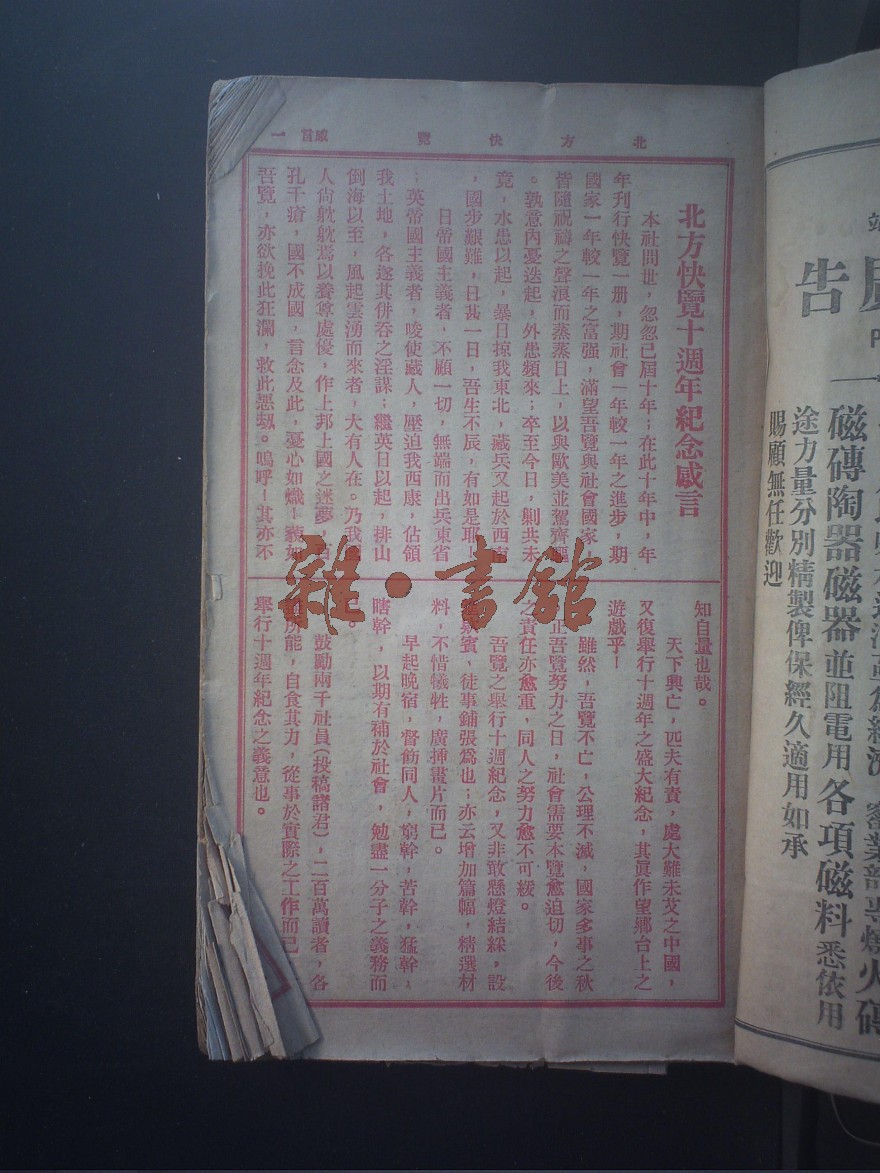 北方快覽　感言　一
北方快覽十週年紀念感言
本社問世，忽忽已屆十年；在此十年中，年
年刊行快覽一册，期社會一年較一年之進步，期
國家一年較一年之富强，滿望吾覽與社會國家，
皆隨祝禱之聲浪而蒸蒸日上，以與歐美並駕齊驅
。孰意內憂迭起，外患頻來；卒至今日，剿共未
竟，水患以起，暴日掠我東北，藏兵又起於西
，國步艱難，日甚一日，吾生不辰，有如是耶！
日帝國主義者，不顧一切，無端而出兵東省
；英帝國主義者，唆使藏人，壓迫我西康，佔領
我土地，各遂其併吞之淫謀；繼英日以起，排山
倒海以至，風起雲湧而來者，大有人在。乃我
人尙躭躭焉以養尊處優，作上邦上國之迷夢，百
孔千瘡，國不成國，言念及此，憂心如熾！藐如
吾覽，亦欲挽此狂瀾，救此惡刼。嗚呼！其亦不
知自量也哉。
天下興亡，匹夫有責，處大難未艾之中國，
又復舉行十週年之盛大紀念，其眞作望鄉台上之
遊戲乎！
雖然，吾覽不亡，公理不滅，國家多事之秋
正吾覽努力之日，社會需要本覽愈迫切，今後
之責任亦愈重，同人之努力愈不可緩。
吾覽之舉行十週紀念，又非敢懸燈結綵，設
賓，徒事鋪張爲也；亦云增加篇幅，精選材
料，不惜犧牲，廣揷畫片而已。
早起晚宿，督飭同人，窮幹，苦幹，猛幹，
瞎幹，以期有補於社會，勉盡一分子之義務而
。
鼓勵兩千社員（投稿諸君），二百萬讀者，各
所能，自食其力，從事於實際之工作而已
舉行十週年紀念之義意也。
雜·書館
告
一
磁磚陶器磁器並阻電用各項磁料悉依用
途力量分別精製俾保經久適用如承
賜顧無任歡迎